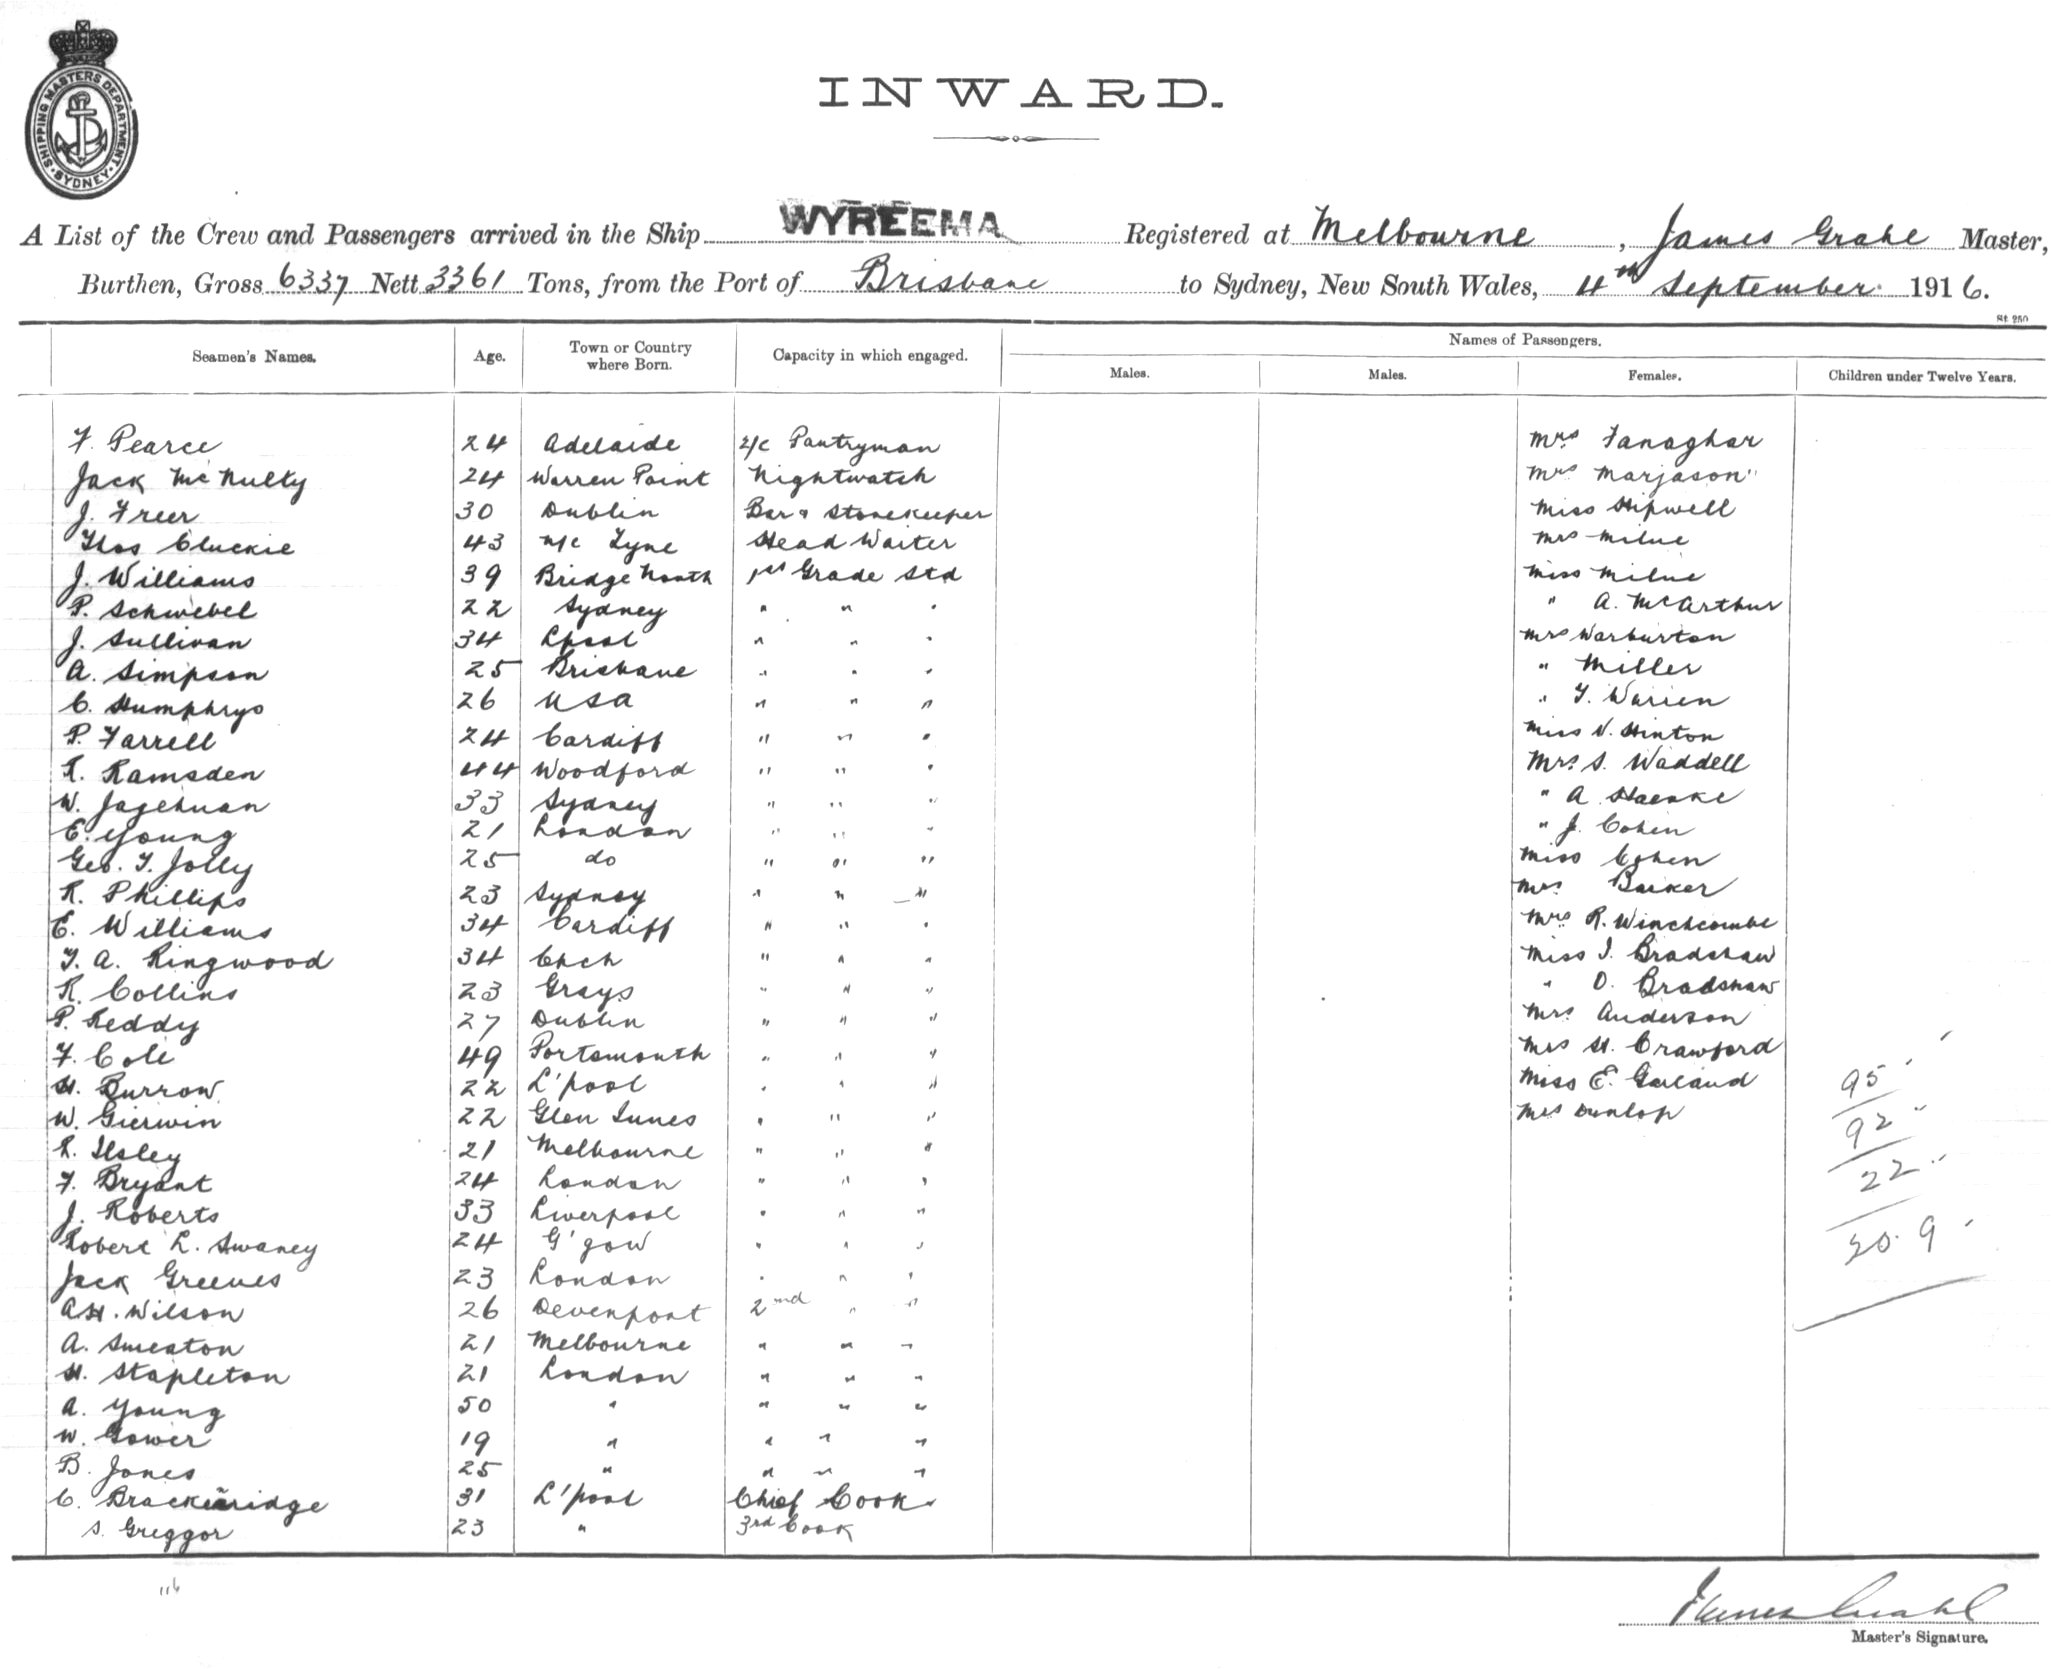 SHIPPING MASTERS DEPARTMENT · SYDNEY ·
INWARD.
A List of the Crew and Passengers arrived in the Ship WYREEMA Registered at Melbourne, James Grahl Master,
Burthen, Gross 6337 Nett 3361 Tons, from the Port of Brisbane to Sydney, New South Wales, 4th September 1916.
St. 250
Seamen's Names. Age. Town or Country where Born. Capacity in which engaged. Names of Passengers.
Males. Males. Females. Children under Twelve Years.
F. Pearce 24 Adelaide 2/c Pantryman Mrs Fanaghar
Jack McNulty 24 Warren Point Nightwatch Mrs Marjason
J. Freer 30 Dublin Bar & Storekeeper Miss Hipwell
Thos Cluckie 43 n/c Tyne Head Waiter Mrs Milne
J. Williams 39 Bridge North 1st Grade Std Miss Milne
P. Schwebel 22 Sydney " " " " A. McArthur
J. Sullivan 34 Lpool " " " Mrs Warburton
A. Simpson 25 Brisbane " " " " Miller
C. Humphrys 26 USA " " " " F. Warren
P. Farrell 24 Cardiff " " " Miss V. Hinton
R. Ramsden 44 Woodford " " " Mrs S. Waddell
W. Jagelman 33 Sydney " " " " A. Haenke
E. Young 21 London " " " " J. Cohen
Geo. F. Jolly 25 do " " " Miss Cohen
R. Phillips 23 Sydney " " " Mrs Barker
E. Williams 34 Cardiff " " " Mrs R. Winchcombe
F. A. Ringwood 34 Chch " " " Miss I. Bradshaw
R. Collins 23 Grays " " " " D. Bradshaw
P. Reddy 27 Dublin " " " Mrs Anderson
F. Cole 49 Portsmouth " " " Mrs H. Crawford
H. Burrow 22 L'pool " " " Miss E. Garland 95
W. Gierwin 22 Glen Innes " " " Mrs Dunlop 92
R. Ilsley 21 Melbourne " " " 22
F. Bryant 24 London " " "
J. Roberts 33 Liverpool " " "
Robert L. Swaney 24 G'gow " " " 20.9
Jack Greeves 23 London " " "
A H. Wilson 26 Devenport 2nd " "
A. Smeaton 21 Melbourne " " "
H. Stapleton 21 London " " "
A. Young 50 " " " "
W. Gower 19 " " " "
B. Jones 25 " " " "
C. Brackenridge 31 L'pool Chief Cook
S. Greggor 23 " 3rd Cook
James Grahl
Master's Signature.